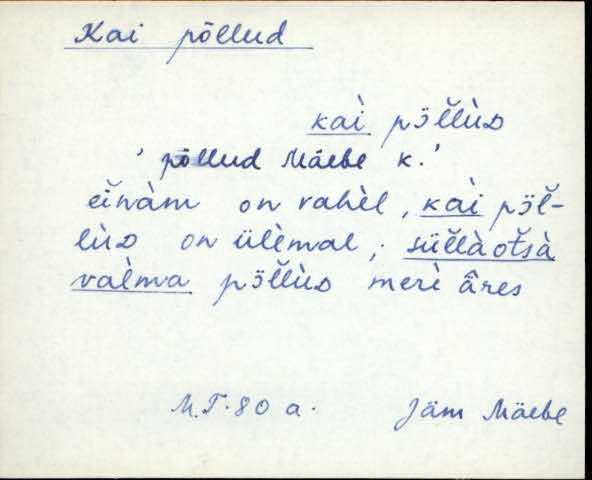 Kai põllud
kaì pɔ̈l̆lùᴅ
' põllud Mäebe k. '
eĭnàm on vahèl, kaì pɔ̈l̆-
lùᴅ on ülèmal; sül̆làoťsà
vaèma pɔ̈l̆lùᴅ merì ä̂res
M.T. 80 a. Jäm Mäebe